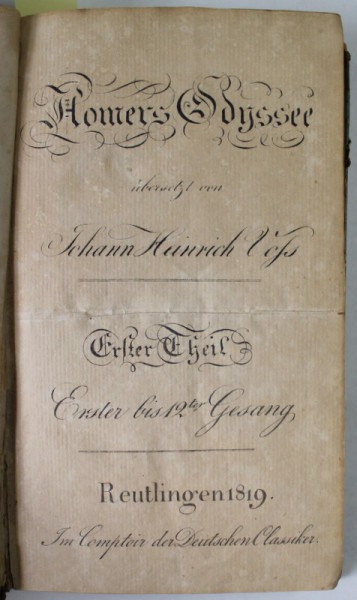 Homers Odyssee
übersetzt von
Johann Heinrich Voſs
Erſter Theil
Erster bis 12ter Gesang,
Reutlingen 1819.
Im Comptoir der Deutschen Classiker.